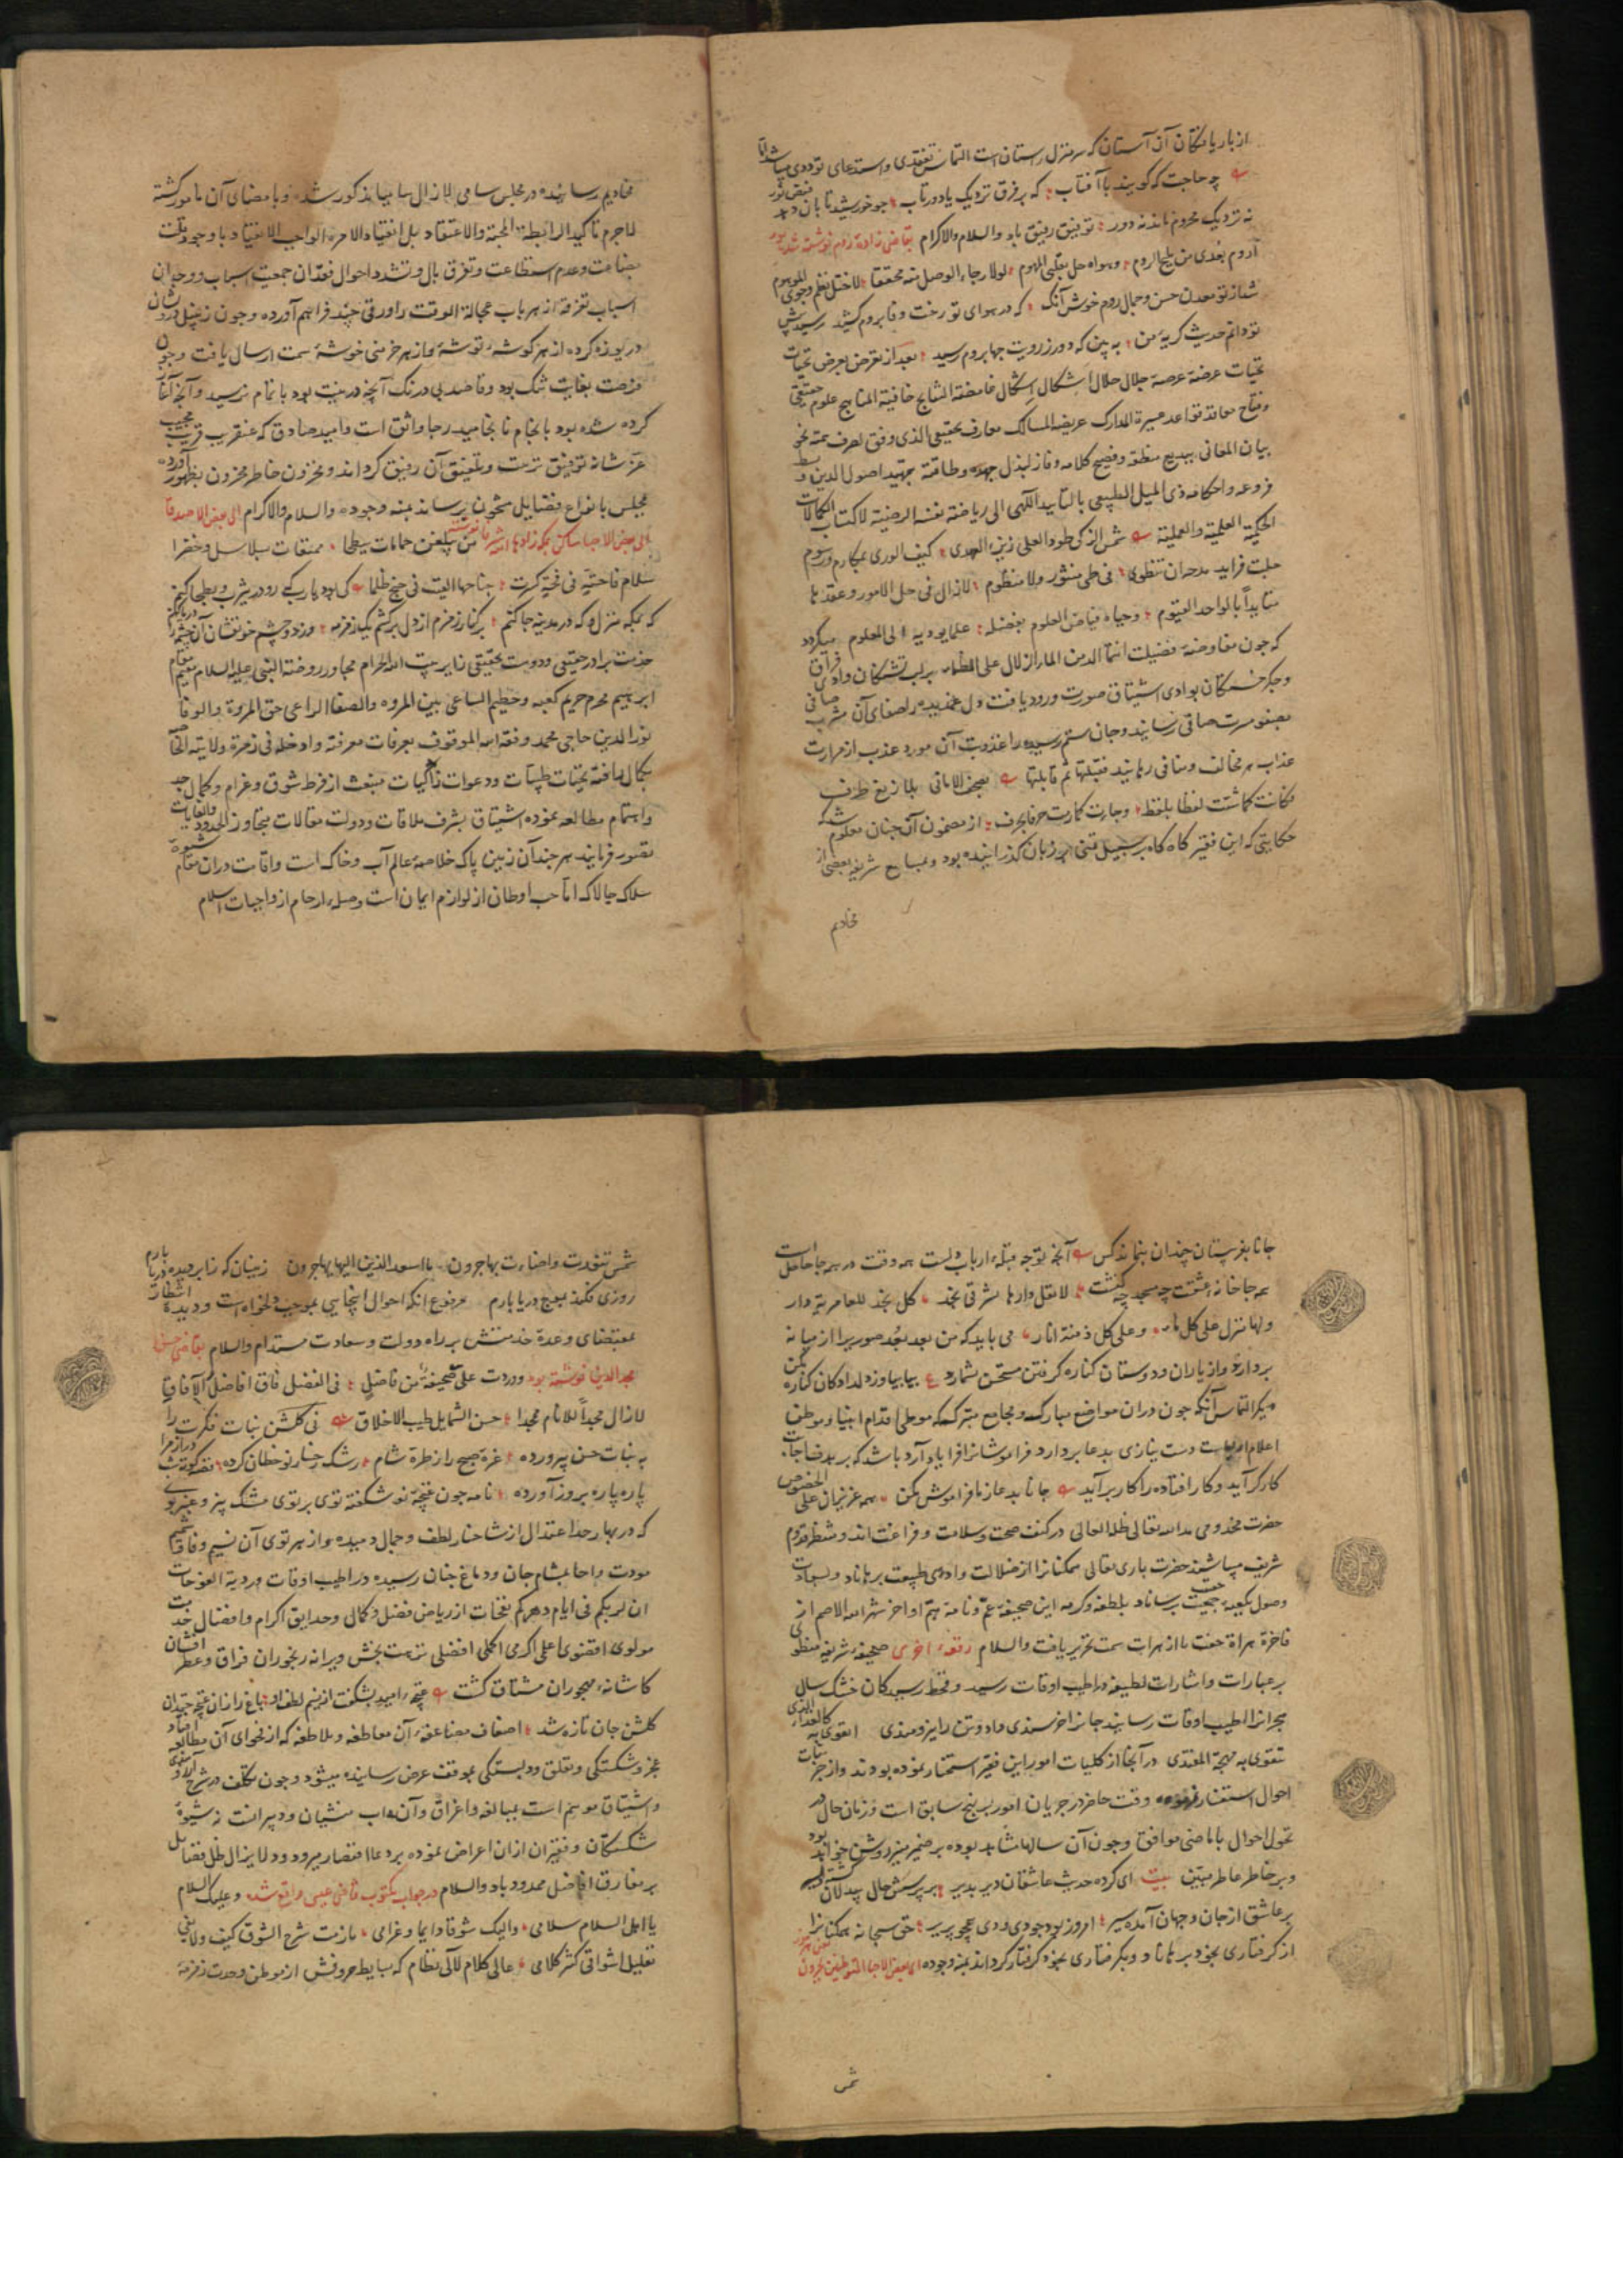 از باریافتگان آن آستان که سرمنزل راستان است التماس تفقدی واستدعای توددی میباشد
چه حاجت که کویند با آفتاب که بر فرق نزدیک یا دور تاب جو خورشید تابان دهد فیض نور
نه نزدیک محروم ماند نه دور توفیق رفیق باد والسلام والاکرام بقاضی زاده روم نوشته شده بود
اروم بعدی من بلیح الروم وهواه حل بقلبی المهموم لولا رجاء الوصل منه محققا لاختل نظم وجودی الموهوم
شد از تو معدن حسن وجمال روم خوش آنک که در هوای تو رخت وفا بروم کشید
تو دانم حدیث کریهٔ من به بین که دور ز رویت جها بروم رسید بعد از تعرض بعرض تحیات
تحیات عرضه عرصهٔ جلال حلال اشکال اشکال غامضة النتایج خافیة المناهج علوم حقیقی
وفتاح معاقد قواعد عسیرة المدارک عریضه المسالک معارف تحقیقی الذی وفق لصرف همته نحو
بیان المعانی ببدیع منطقه وفصیح کلامه وفاز لبذل جهده وطاقته بتمهید اصول الدین
فروعه واحکامه ذی المیل الطبیعی بالتایید الالهی الی ریاضة نفسه الرضیة لاکتساب الکمالات
الحکمیة العلمیة والعملیة شمس الزکی طود العلی زین الهدی کیف الوری بمکارم ورسوم
جلت فراید مدحه ان تنطوی فی طی منثور ولا منظوم لازال فی حل الامور وعقدها
متایدا بالواحد القیوم وحیاه فیاض العلوم بفضله علما یودیه الی المعلوم میکردد
که چون مفاوضهٔ فضیلت انتمآ الدین الماء الزلال علی الظماء بر لب تشنکان وادی فراق
وجکر خستکان بوادی اشتیاق صورت ورود یافت ودل غمدیده را صفای آن مشرب صافی
بصفو مسرت صافی رسانید وجان ستم رسیده را عذوبت آن مورد عذب از مرارت
عذاب هر مخالف ومنافی رهانید فقبلتها ثم قابلتها بصحف الامانی بلا زیغ طرف
فکانت کما شئت لفظا بلفظ وجاءت کما رمت حرفا بحرف از مضمون آن چنان معلوم شد که
حکایتی که این فقیر کاه کاه بر سبیل تمنی بر زبان کذرانیده بود وبمسامع شریفه بعضی از
مخادیم
مخادیم رسانیده در مجلس سامی لازال سامیا مذکور شده وبامضای آن مامور کشته
لاجرم تاکیدا لرابطة المحبة والاعتقاد بل انقیادا لامره الواجب الانقیاد با وجود قلت
بضاعت وعدم استطاعت وتفرق بال وتشدد احوال فقدان جمعیت اسباب ووجدان
اسباب تفرقه از هر باب عجالة الوقت را ورقی چند فراهم آورده وچون زنبیل درویشان
دریوزه کرده از هر کوشهٔ توشهٔ واز هر خرمنی خوشهٔ سمت ارسال یافت وچون
فرصت بغایت تنک بود وقاصد بی درنک آنچه در نیت بود باتمام نرسید وآنچه آغاز
کرده شده بود بانجام نانجامید رجا واثق است وامید صادق که عنقریب قریب مجیب
عز شانه توفیق تربیت وتلفیق آن رفیق کرداند ومخزون خاطر محزون بظهور آورده
مجلس بانواع فضایل مشحون برساند بمنه وجوده والسلام والاکرام الی بعض الاصدقا
الی بعض الاحبا ساکن مکه زادها الله شرفا نوشته من یبلغن حمامات ببطحا ممتعات بسلاسل وخضرا
سلام فاختیه فی نخیة کرت جناحها الیت فی جنح ظلما کی بود یا رب که رو در یثرب وبطحا کنم
که بمکه منزل وکه در مدینه جا کنم بر کنار زمزم از دل برکشم یک زمزمه وز دو چشم خونفشان آن چشمه را دریا کنم
خدمت برادر حقیقی ودوست تحقیقی زایر بیت الله الحرام مجاور روضة النبی علیه السلام مقیم مقام
ابرهیم محرم حریم کعبه وحطیم الساعی بین المروه والصفا الراعی حق المروة والوفا
نور الدین حاجی محمد وفقه الله الموقوف بعرفات معرفته وادخله فی زمرة ولایته الخاصة
بکمال رافته تحیات طیبات ودعوات زاکیات منبعث از فرط شوق وغرام وکمال جد
واهتمام مطالعه نموده اشتیاق بشرف ملاقات ودولت مقالات متجاوز الحدود والغایات
تصور فرمایند هر چند آن زمین پاک خلاصهٔ عالم آب وخاک است واقامت دران مقام شیوهٔ
سلاک چالاک اما حب اوطان از لوازم ایمان است وصله ارحام از واجبات اسلام
جانا بغریبستان چندان بنماند کس آنچه توجه قبلهٔ ارباب ولست همه وقت در همه جا حاصل است
همه جا خانهٔ عشقت چه مسجد چه کنشت لا تقل دارها بشرقی نجد کل نجد للعامریة دار
ولها منزل علی کل ماء وعلی کل دمنة اثار می باید که من بعد بعد صوریرا از میانه
بردارد واز یاران ودوستان کناره کرفتن مستحسن نشمارد ع بیا بیا وز دلدادکان کناره مکن
دیکر التماس آنکه چون دران مواضع مبارک ومجامع متبرکه که موطی اقدام انبیا وموطن
اعلام اولیاست دست نیازی بدعا بردارد فراموشانرا فرایاد آرد باشد که بر هدف اجابت
کارکر آید وکار افتاده را کار برآید جانا بدعا از ما فراموش مکن همه عزیزان علی الخصوص
حضرت مخدومی مد الله تعالی ظله العالی در کنف صحت وسلامت وفراغت اند ومنتظر قدوم
شریف میباشند حضرت باری تعالی همکنانرا از ضلالت وادی طبیعت برهاناد وبسعادت
وصول بکعبه حقیقت برساناد بلطفه وکرمه این صحیفه غم ونامهٔ هم اواخر شهر الله الاصم از
فاخرهٔ هراة حفت بالازهرات سمت تحریر یافت والسلام رقعهٔ اخری صحیفهٔ شریفه منطوی
بر عبارات واشارات لطیفه در اطیب اوقات رسید وقحط رسیدکان خشک سال
هجرانرا اطیب اوقات رسانید جانرا خرسندی داد وتن را برومندی کالغذاء الذی
تقوی به مهجة المغتدی در آنجا از کلیات امور این فقیر استخبار نموده بودند واز جزئیات
احوال استفسار فرموده وقت حاضر در جریان امور بر نهج سابق است وزمان حال در
تحول احوال با ماضی موافق وچون آن سالها مشاهد بوده بر ضمیر منیر روشن خواهد بود
وبر خاطر عاطر مبین بیت ای کرده حدیث عاشقان دیر بدیر در پرسش حال بیدلان
بر عاشق از جان وجهان آمده سیر امروز بود جودی ودی عجو پریر حق سبحانه همکنانرا
از کرفتاری بخود برهاناد وبکرفتاری بخود کرفتار کرداند بمنه وجوده الی بعض الاحبا المتوطنین بجرون
شمس
شمس تفقدت واضاءت بهاجرون یا اسعد الذین الیها یهاجرون زینسان که زابر دیده دریا بارم
روزی فکند بموج دریا بارم مرفوع آنکه احوال اینجایی بموجب دلخواه است ودیده انتظار
بمقتضای وعدهٔ خدمتش بر راه دولت وسعادت مستدام والسلام بقاضی
مجد الدین نوشته بود وردت علی صحیفة من فاضل فی الفضل فاق افاضل الآفاق
لازال مجدا للانام ممجدا حسن الشمایل طیب الاخلاق نی کلشن نبات فکرت را
به نبات حسن پرورده غرهٔ صبح را ز طرهٔ شام رشک رخسار نوخطان کرده
پاره پاره بروز آورده نامه چون غنچهٔ نو شکفته توی بر توی مشک بیز وعنبر بوی
که در بهار حد اعتدال از شاخسار لطف وجمال دمیده واز هر توی آن نسیم وفا وشمیم
مودت واخا بمشام جان ودماغ جنان رسیده در اطیب اوقات وردیة الفوحات
ان لربکم فی ایام دهرکم نفحات از ریاض فضل وکمال وحدایق اکرام وافضال خدمت
مولوی اقضوی اعلمی اکرمی اکملی افضلی نزهت بخش ویرانه رنجوران فراق وعطر افشان
کاشانهٔ مهجوران مشتاق کشت غنچهٔ امید بشکفت از نسیم لطف او باغ را زان غنچه خندان
کلشن جان تازه شد اضعاف مضاعفهٔ آن معاطفه وملاطفه که از فحوای آن مطالعه افتاد
عجز وشکستکی وتعلق ودلبستکی بموقف عرض رسانیده میشود وچون تکلف در شرح آرزومندی
واشتیاق موسم است بمبالغه واغراق وآن داب منشیان ودبیرانست نه شیوهٔ
شکستکان وفقیران ازان اعراض نموده بر دعا اقتصار میرود لا یزال ظل فضایل
بر مفارق افاضل ممدود باد والسلام در جواب مکتوب قاضی عیسی واقع شده وعلیک السلام
یا اهل السلام سلامی والیک شوقا دایما وغرامی مارمت شرح الشوق کیف ولایفی
تقلیل اشواقی کثیر کلامی عالی کلام لآلی نظام که بسایط حروفش از موطن وحدت زمزمه